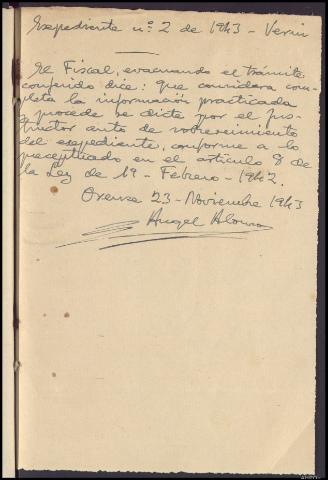 Expediente nº 2 de 1943 - Verin
El Fiscal, evacuando el trámite
conferido dice: que considera com-
pleta la información practicada
y procede se dicte por el Ins-
tructor auto de sobreseimiento
del expediente, conforme a lo
preceptuado en el artículo 8 de
la Ley de 19 - Febrero - 1942.
Orense 23 - Noviembre 1943
Angel Alonso